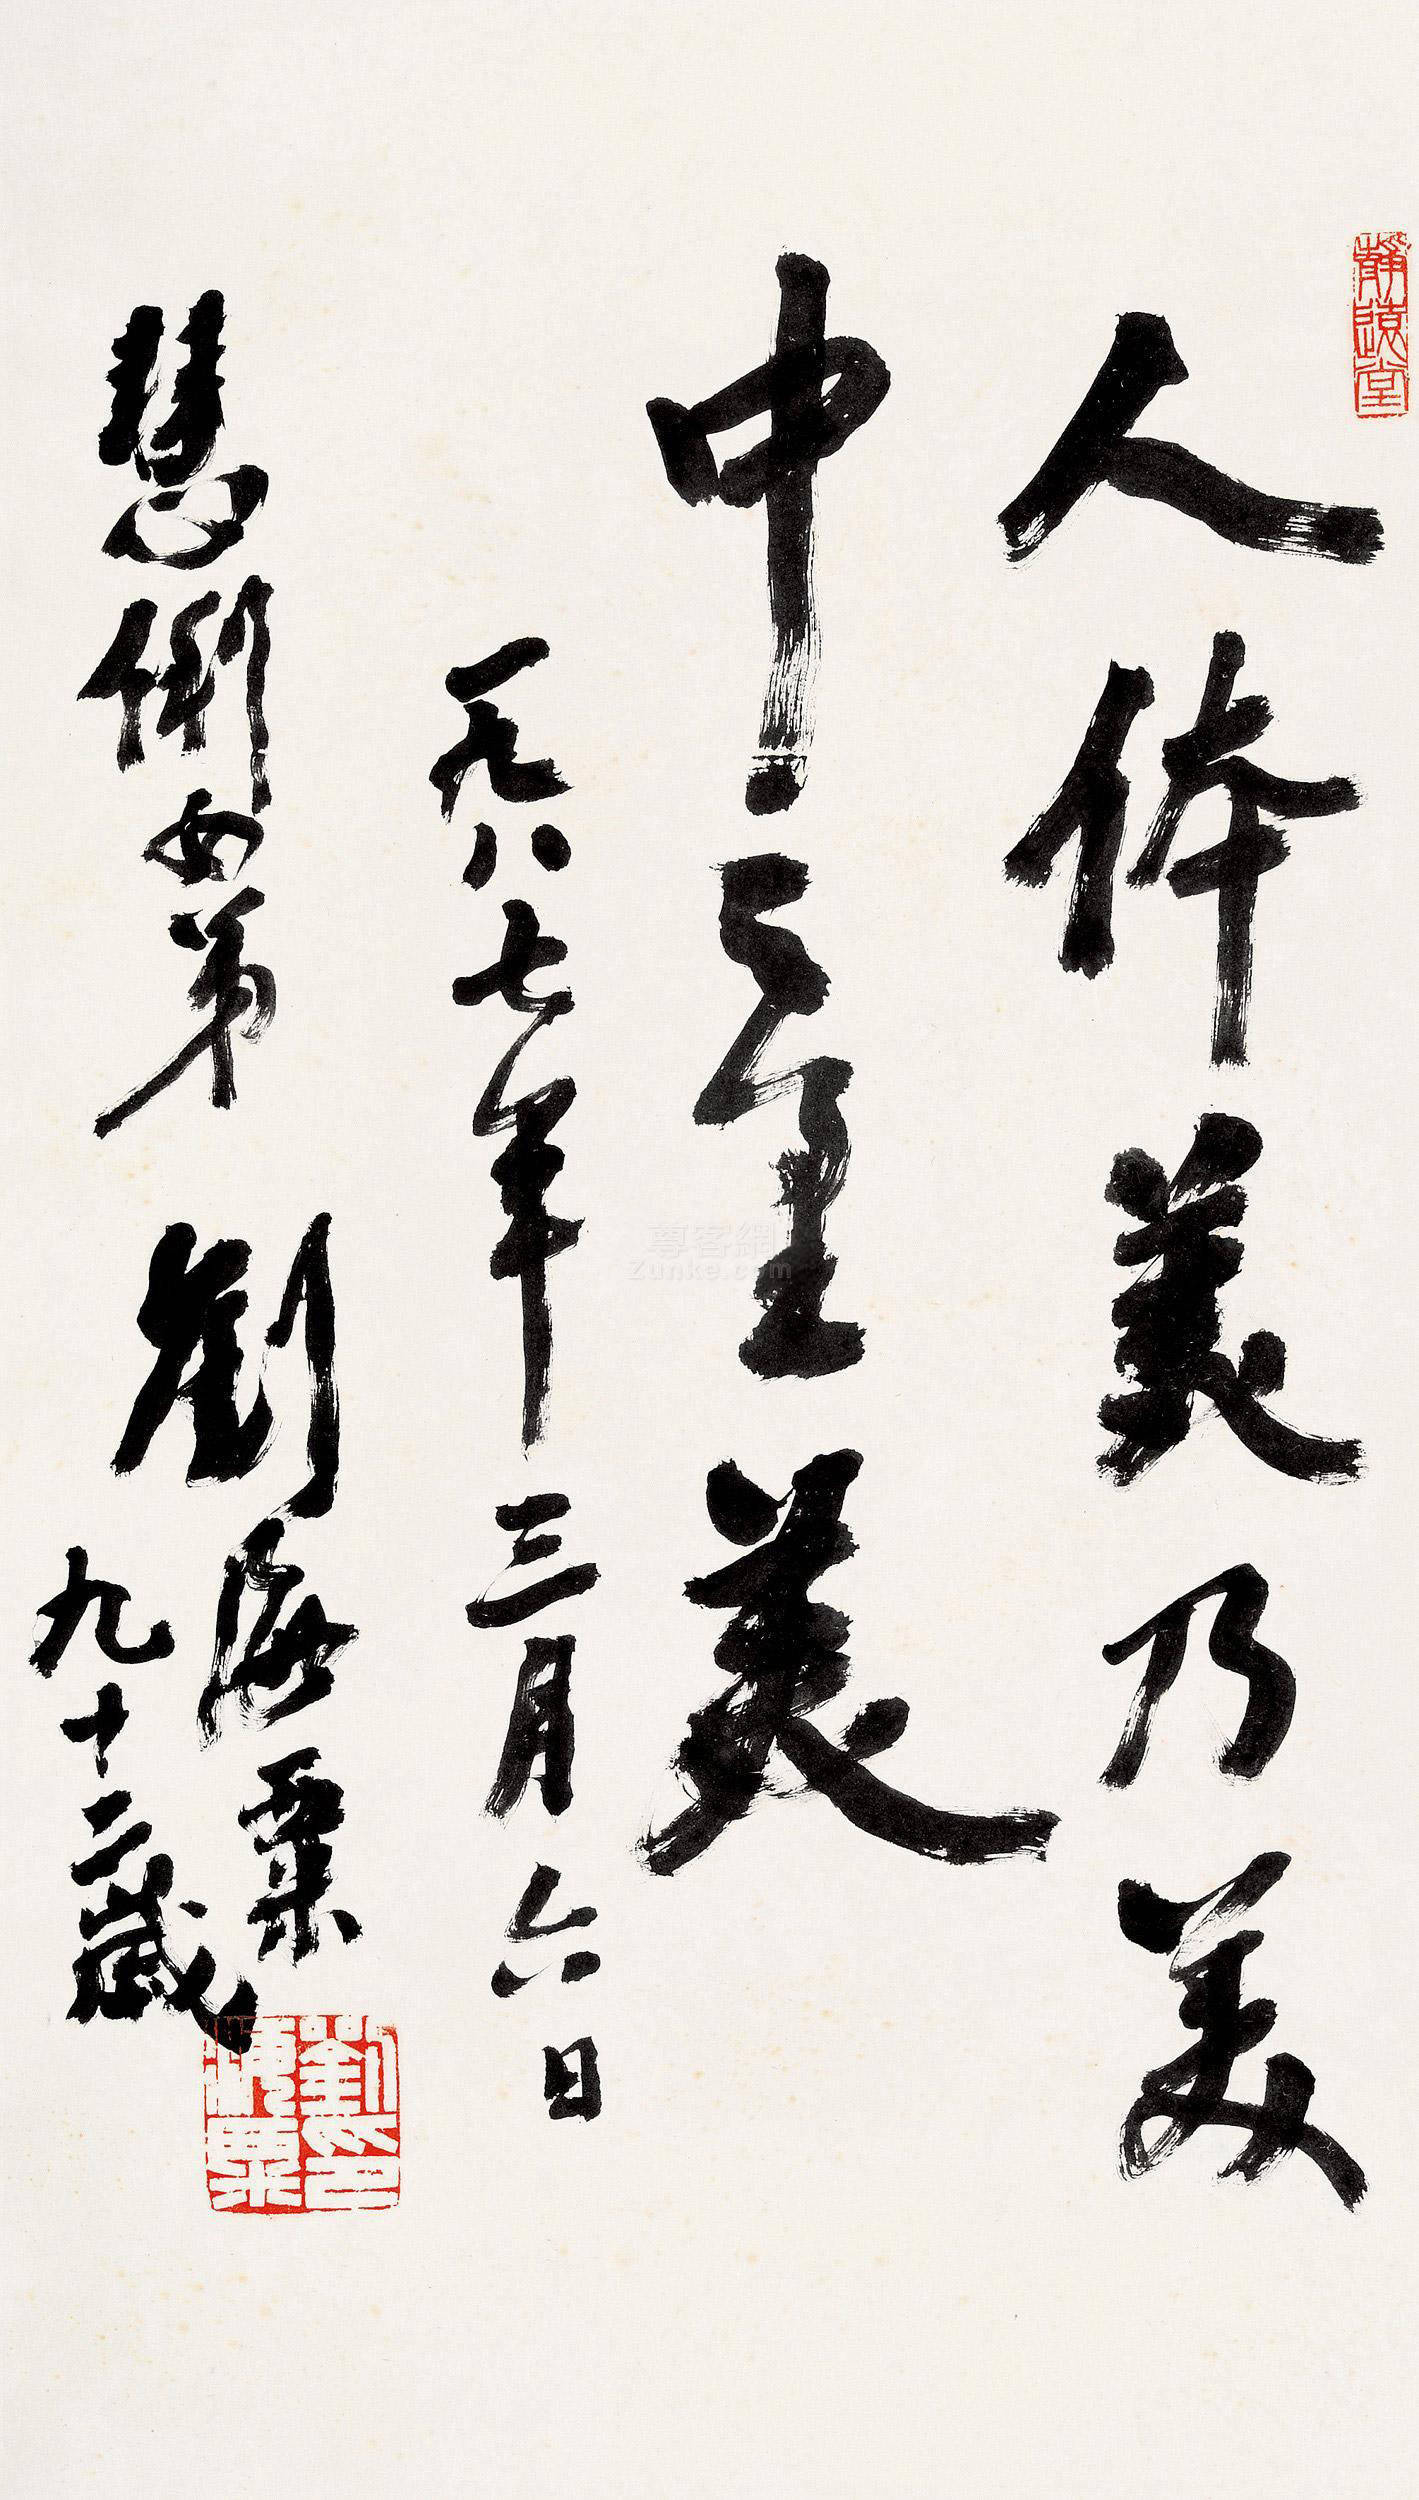 静远堂
人体美乃美
中之至美
一九八七年三月六日
慧俐女弟
劉海粟
九十二歲
劉海粟印
尊客網
Zunke.com